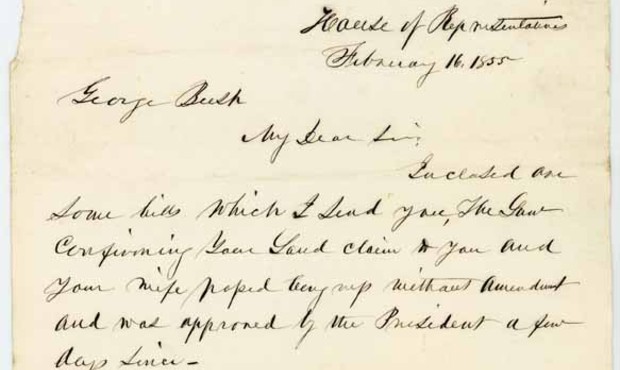 House of Representatives
February 16, 1855
George Bush
My Dear Sir,
Inclosed are
some bills which I send you, The Law
Confirming Your Land claim to you and
Your wife passed Congress without amendment
and was approved by the President a few
days since -